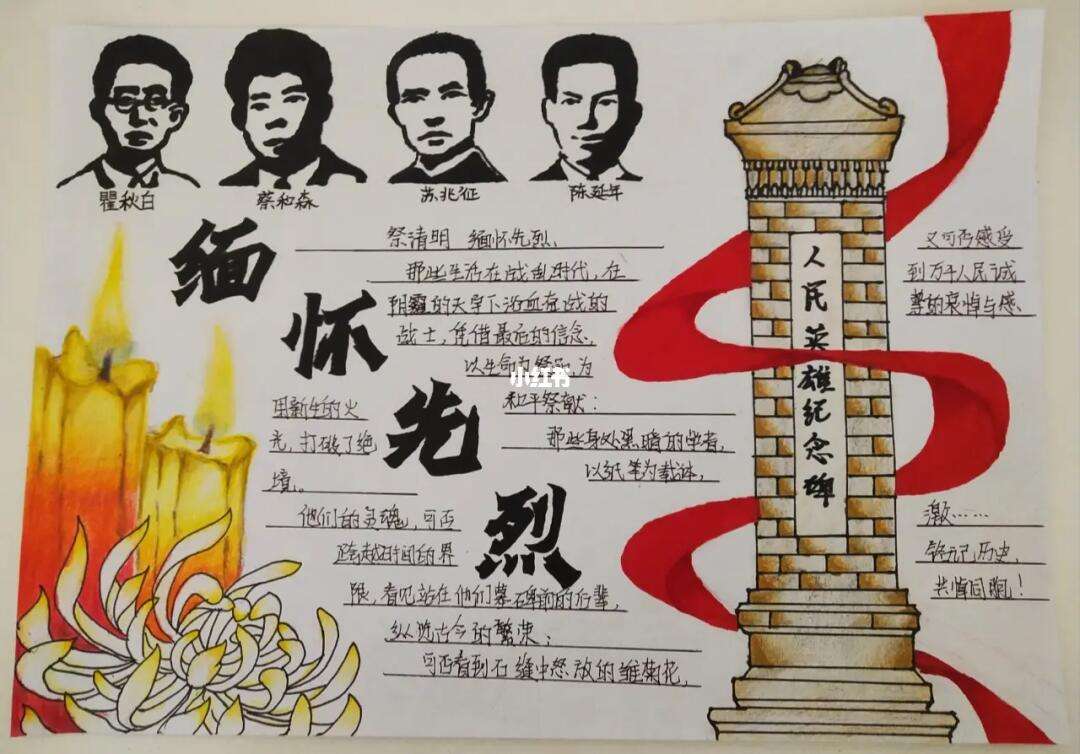 瞿秋白
蔡和森
苏兆征
陈延年
缅怀先烈
祭清明 缅怀先烈、
那些生活在战乱时代，在
阴霾的天宇下浴血奋战的
战士，凭借最后的信念，
以生命为 为
和平祭献：
那些身处黑暗的学者，
以纸笔为载体，
用新生的火
光，打破了绝
境。
他们的灵魂，可否
跨越时间的界
限，看见站在他们墓碑前的后辈，
纵览古今的繁荣；
可否看到石缝中怒放的雏菊花，
又可否感受
到万千人民诚
挚的哀悼与感
激……
铭记历史，
共情同胞！
人民英雄纪念碑
小红书